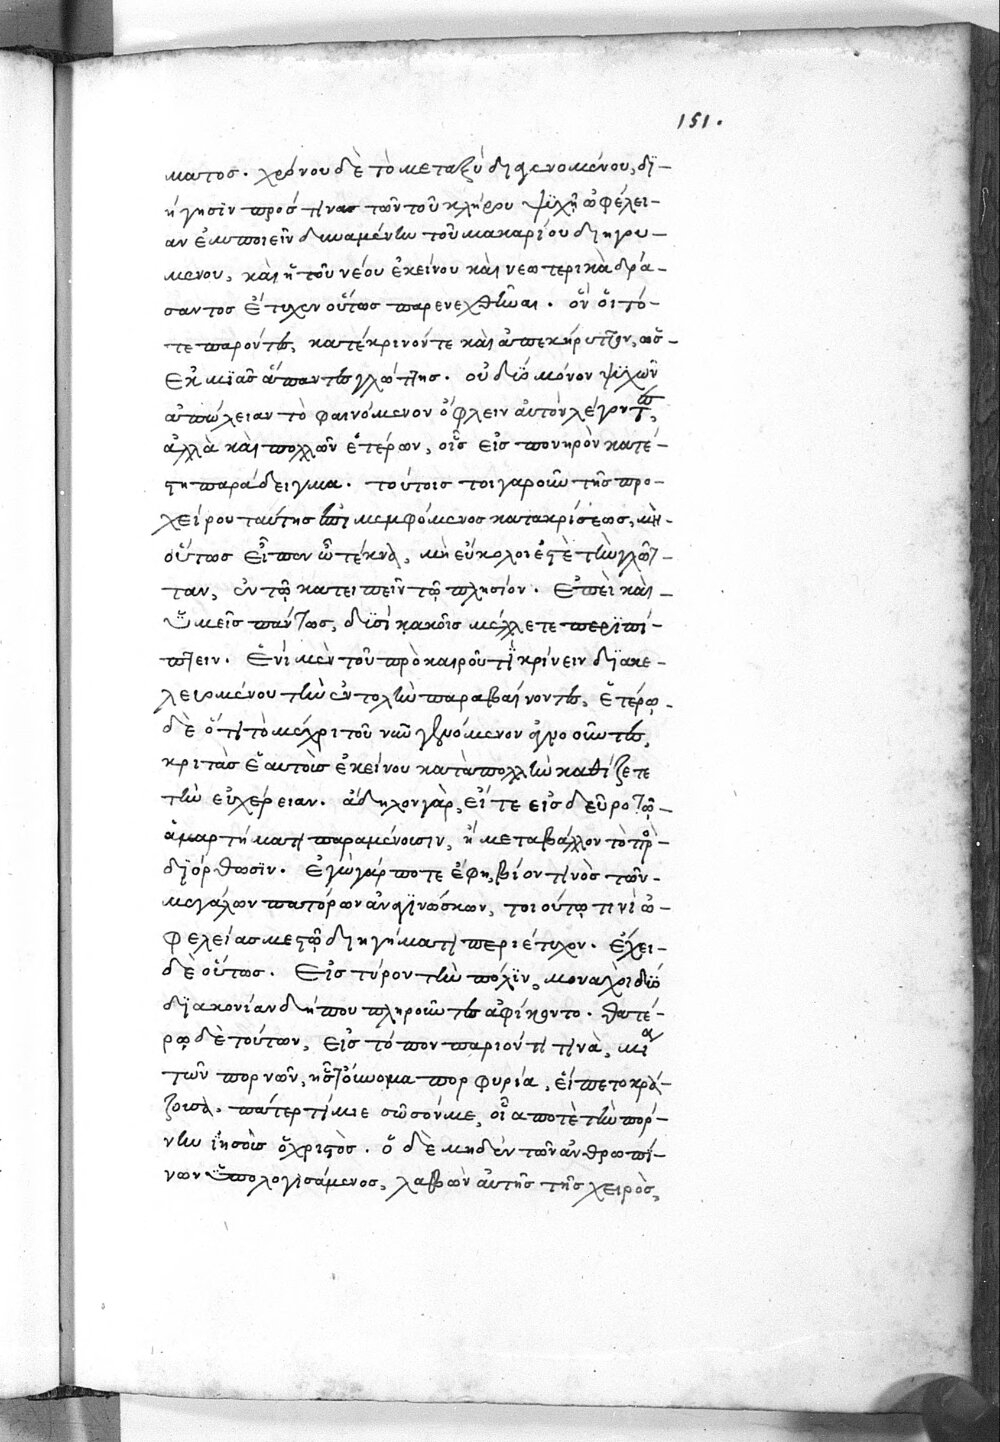 151.
ματος. χρόνου δὲ τὸ μεταξὺ διαγενομένου, δϊ-
ήγησϊν πρός τινας τῶν τοῦ κλήρου ψϋχῆ ὠφέλει-
αν ἐμποιεῖν δυναμένην τοῦ μακαρίου διηγου-
μένου, καὶ ἡ τοῦ νέου ἐκείνου καὶ νεωτερικὰ δρά-
σαντος ἔτυχεν οὕτως παρενεχθῆναι. ὃν οἱ τό-
τε παρόντες, κατέκρινόν τε καὶ ἀπεκήρυττον, ὡς
ἐκ μϊᾶς ἅπαντες γλώττης. οὐ δύο μόνον ψϋχῶν
ἀπώλειαν τὸ φαινόμενον ὄφλειν αὐτὸν λέγοντες,
ἀλλὰ καὶ πολλῶν ἑτέρων, οἷς εἰς πονηρὸν κατέ-
στη παράδειγμα. τούτοις τοιγαροῦν τῆς προ-
χείρου ταύτης ἐπιμεμφόμενος κατακρίσεως, μὴ
οὕτως εἶπεν ὦ τέκνα, μὴ εὔκολοι ἐστὲ τὴν γλῶτ-
ταν, ἐν τῷ κατειπεῖν τῷ πλησίον. ἐπεὶ καὶ
ὑμεῖς πάντως, δϋσὶ κακοῖς μέλλετε περϊπί-
πτειν. ἑνὶ μὲν τοῦ πρὸ καιροῦ τϊ κρίνειν δϊακε-
λευομένου τὴν ἐντολὴν παραβαίνοντες, ἑτέρῳ
δὲ ὅτι τὸ μέχρι τοῦ νῦν γενόμενον ἀγνοοῦντες,
κριτὰς ἑαυτοὺς ἐκείνου κατὰ πολλὴν καθίζετε
τὴν εὐχέρειαν. ἄδηλον γὰρ, εἴτε εἰς δεῦρο τῷ
ἁμαρτήματι παραμένουσιν, ἢ μετέβαλλον τὸ πρὸς
διόρθωσϊν. ἐγὼ γάρ ποτε ἔφη, βίον τινὸς τῶν
μεγάλων πατέρων ἀναγϊνώσκων, τοιούτῳ τινὶ ὠ-
φελείας μεστῷ διηγήματι περιέτυχον. ἔχει
δὲ οὕτως. εἰς τύρον τὴν πόλϊν, μοναχοὶ δύο
δϊακονίαν δήπου πληροῦντες ἀφίκοντο. θατέ-
ρῳ δὲ τούτων, εἰς τόπον παριόντι τινὰ, μία
τῶν πορνῶν, ἧς τὸ ὄνομα πορφυρία, εἵπετο κρά-
ζουσα. πάτερ τίμιε σῶσόν με, οἷα ποτὲ τὴν πόρ-
νην ἰησοῦς ὁ χριστὸς. ὁ δὲ μηδὲν τῶν ἀνθρωπί-
νων ὑπολογισάμενος, λαβὼν αὐτῆς τῆς χειρὸς,